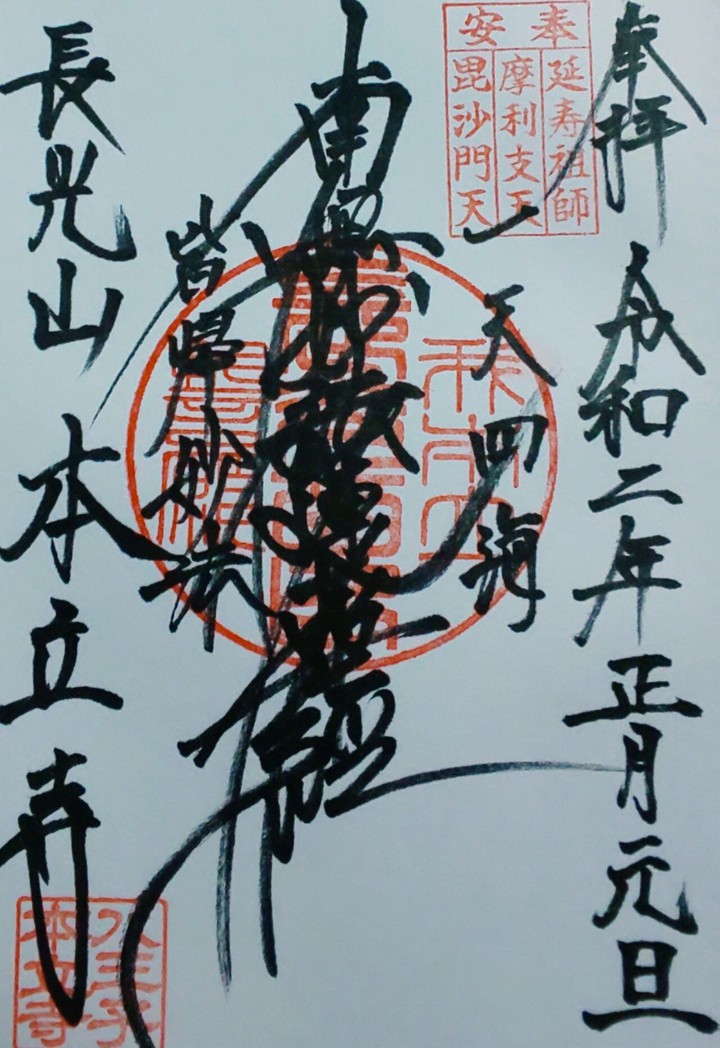 奉拝
令和二年正月元旦
奉安
延寿祖師
摩利支天
毘沙門天
一天四海
南無妙法蓮華経
皆帰妙法
長光山
本立寺
八王子
本立寺